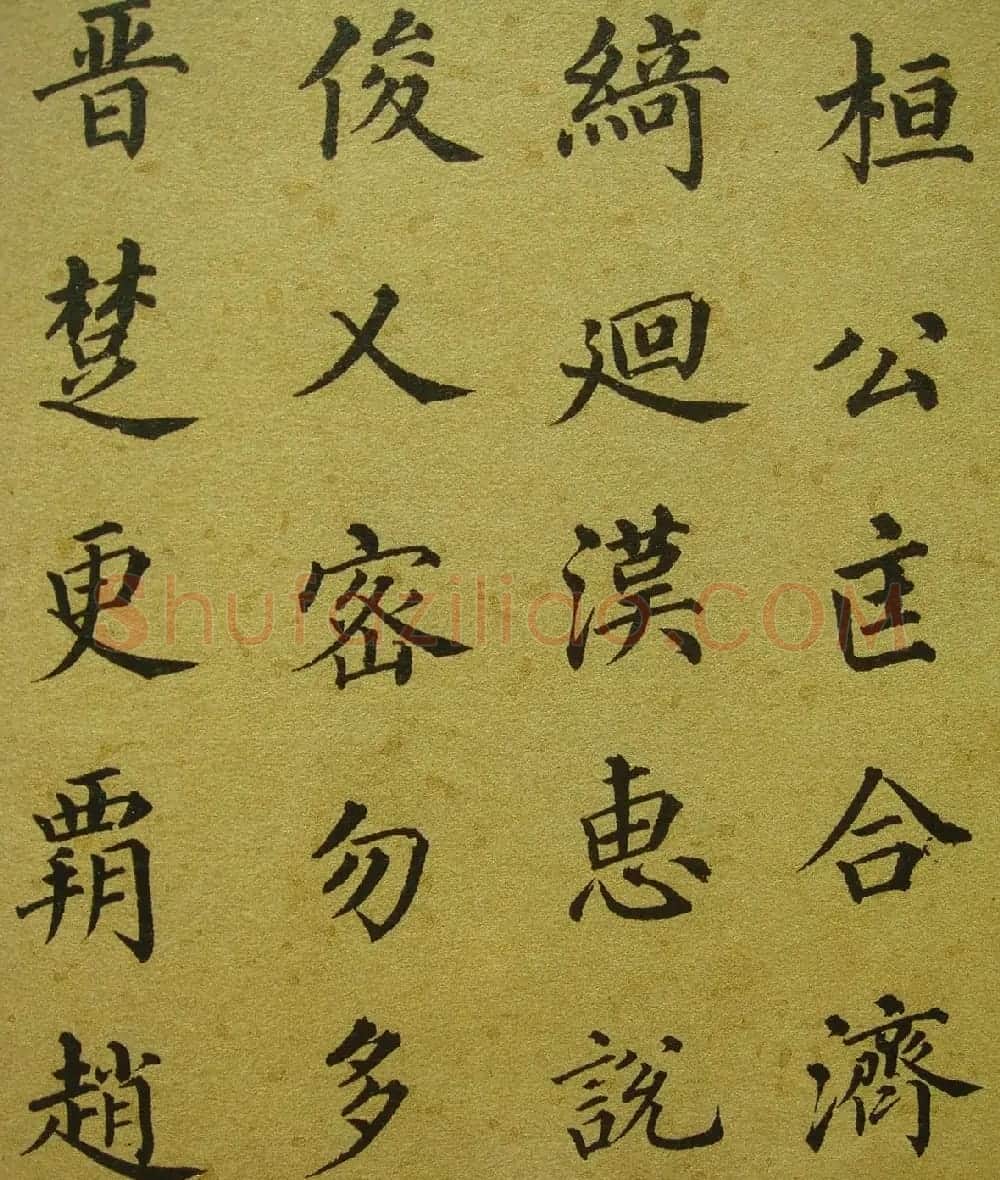 桓公匡合濟
綺迴漢惠說
俊乂密勿多
晋楚更覇趙
Shufaziliao.COM